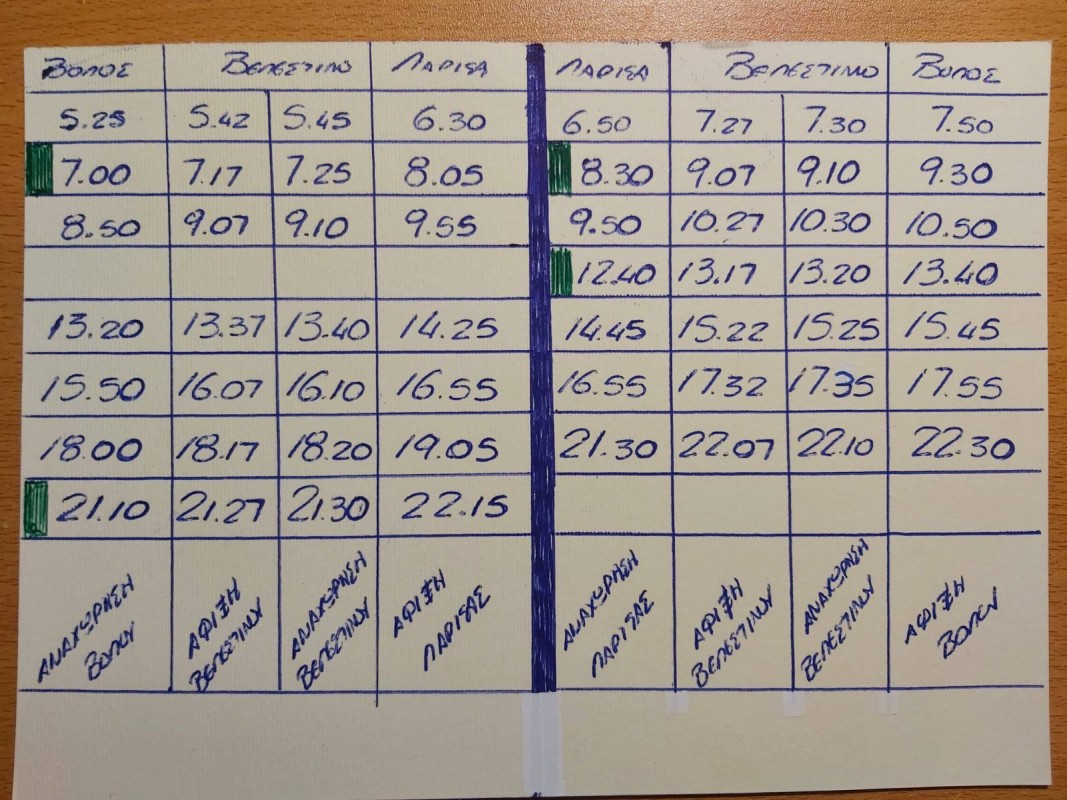 ΒΟΛΟΣ ΒΕΛΕΣΤΙΝΟ ΛΑΡΙΣΑ ΛΑΡΙΣΑ ΒΕΛΕΣΤΙΝΟ ΒΟΛΟΣ
5.25 5.42 5.45 6.30 6.50 7.27 7.30 7.50
7.00 7.17 7.25 8.05 8.30 9.07 9.10 9.30
8.50 9.07 9.10 9.55 9.50 10.27 10.30 10.50
12.40 13.17 13.20 13.40
13.20 13.37 13.40 14.25 14.45 15.22 15.25 15.45
15.50 16.07 16.10 16.55 16.55 17.32 17.35 17.55
18.00 18.17 18.20 19.05 21.30 22.07 22.10 22.30
21.10 21.27 21.30 22.15
ΑΝΑΧΩΡΗΣΗ
ΒΟΛΟΥ
ΑΦΙΞΗ
ΒΕΛΕΣΤΙΝΟΥ
ΑΝΑΧΩΡΗΣΗ
ΒΕΛΕΣΤΙΝΟΥ
ΑΦΙΞΗ
ΛΑΡΙΣΑΣ
ΑΝΑΧΩΡΗΣΗ
ΛΑΡΙΣΑΣ
ΑΦΙΞΗ
ΒΕΛΕΣΤΙΝΟΥ
ΑΝΑΧΩΡΗΣΗ
ΒΕΛΕΣΤΙΝΟΥ
ΑΦΙΞΗ
ΒΟΛΟΥ